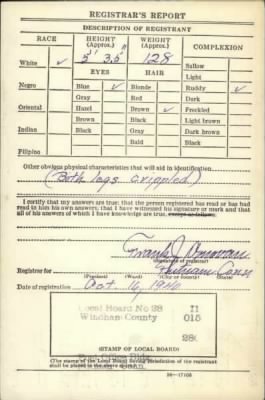 REGISTRAR'S REPORT
DESCRIPTION OF REGISTRANT
RACE HEIGHT (Approx.) WEIGHT (Approx.) COMPLEXION
5' 3.5" 128
White ✓ Sallow
EYES HAIR Light
Negro Blue ✓ Blonde Ruddy ✓
Gray Red Dark
Oriental Hazel Brown ✓ Freckled
Brown Black Light brown
Indian Black Gray Dark brown
Bald Black
Filipino
Other obvious physical characteristics that will aid in identification
(Both legs crippled)
I certify that my answers are true; that the person registered has read or has had read to him his own answers; that I have witnessed his signature or mark and that all of his answers of which I have knowledge are true, except as follows:
Frank J. Donovan
(Signature of registrar)
Registrar for Putnam Conn
(Precinct) (Ward) (City or County) (State)
Date of registration Oct. 16, 1940
Local Board No 28 11
Windham County 015
280
(STAMP OF LOCAL BOARD)
(The stamp of the Local Board having jurisdiction of the registrant shall be placed in the above space.)